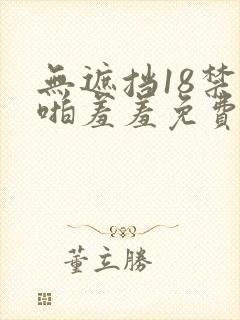 無遮挡18禁
啪羞羞免費
董立勝